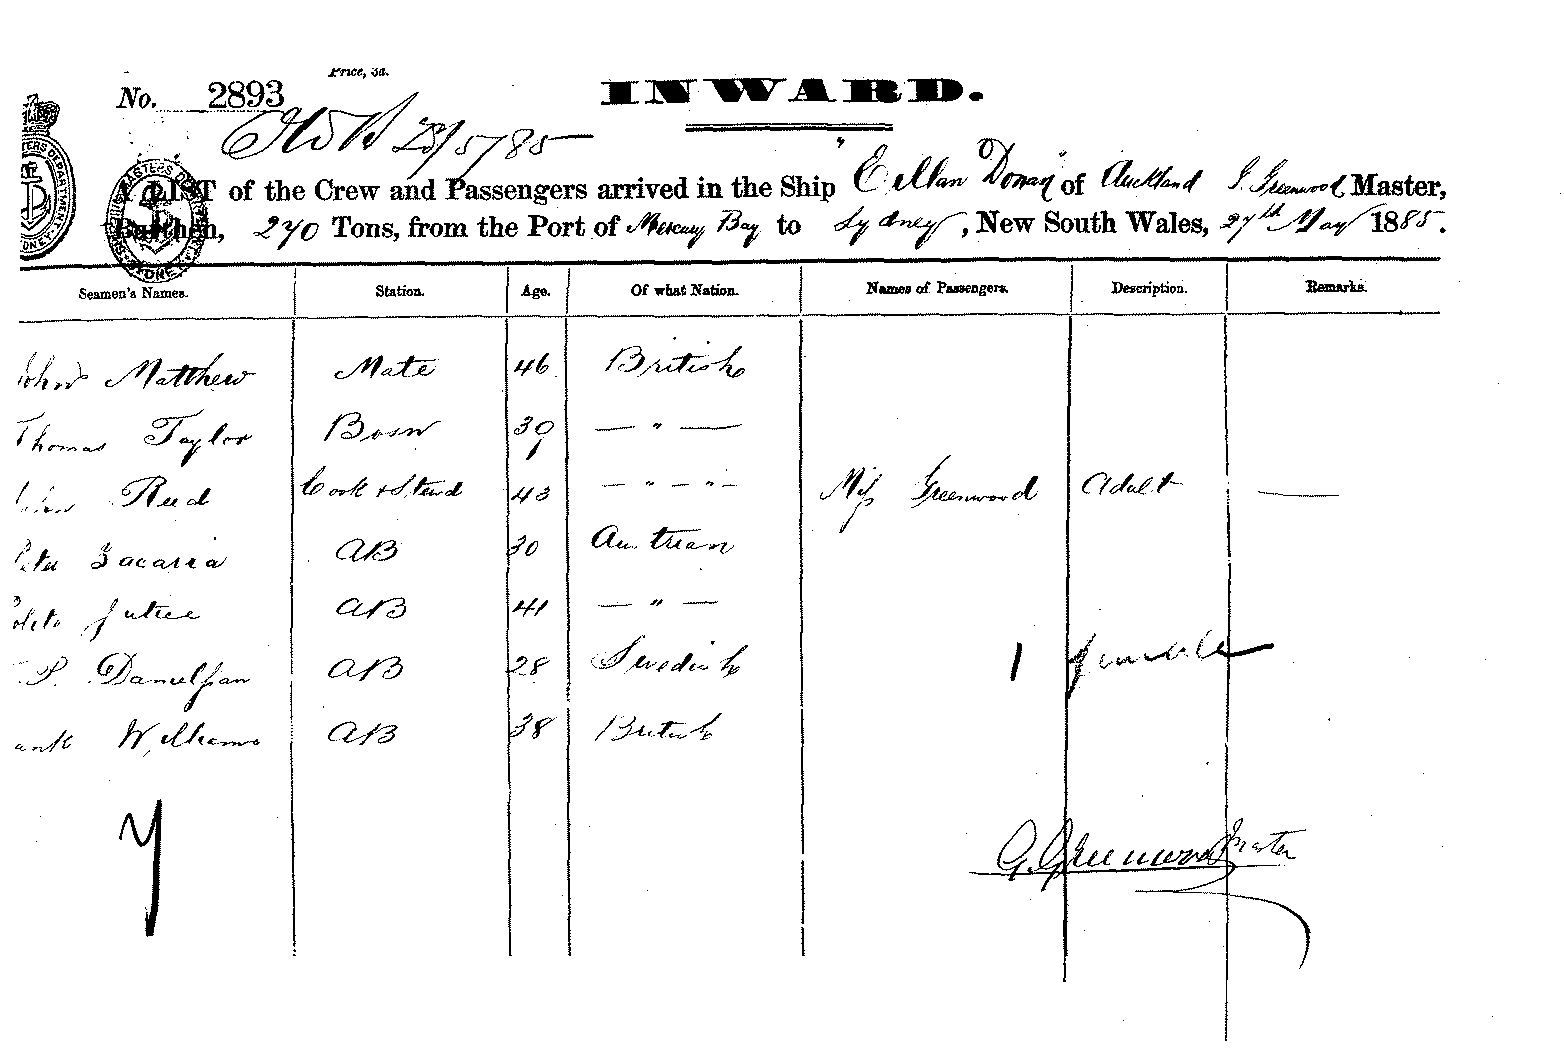 Price, 3d.
No. 2893
INWARD.
28/5/85
A LIST of the Crew and Passengers arrived in the Ship "Eillan Donan" of Auckland G. Greenwood Master,
Burthen, 240 Tons, from the Port of Mercury Bay to Sydney, New South Wales, 27th May 1885.
Seamen's Names. Station. Age. Of what Nation. Names of Passengers. Description. Remarks.
John Matthew Mate 46 British
Thomas Taylor Bosn 39 — " —
John Reed Cook & Stewd 43 — " — " — Miss Greenwood Adult —
Peter Zacaria AB 30 Austrian
AB 41 — " —
P. Danielsson AB 28 Swedish 1
ank Williams AB 38 British
7
G. Greenwood Master